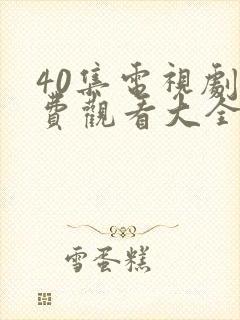 40集電視劇
費觀看大全
雪蛋糕